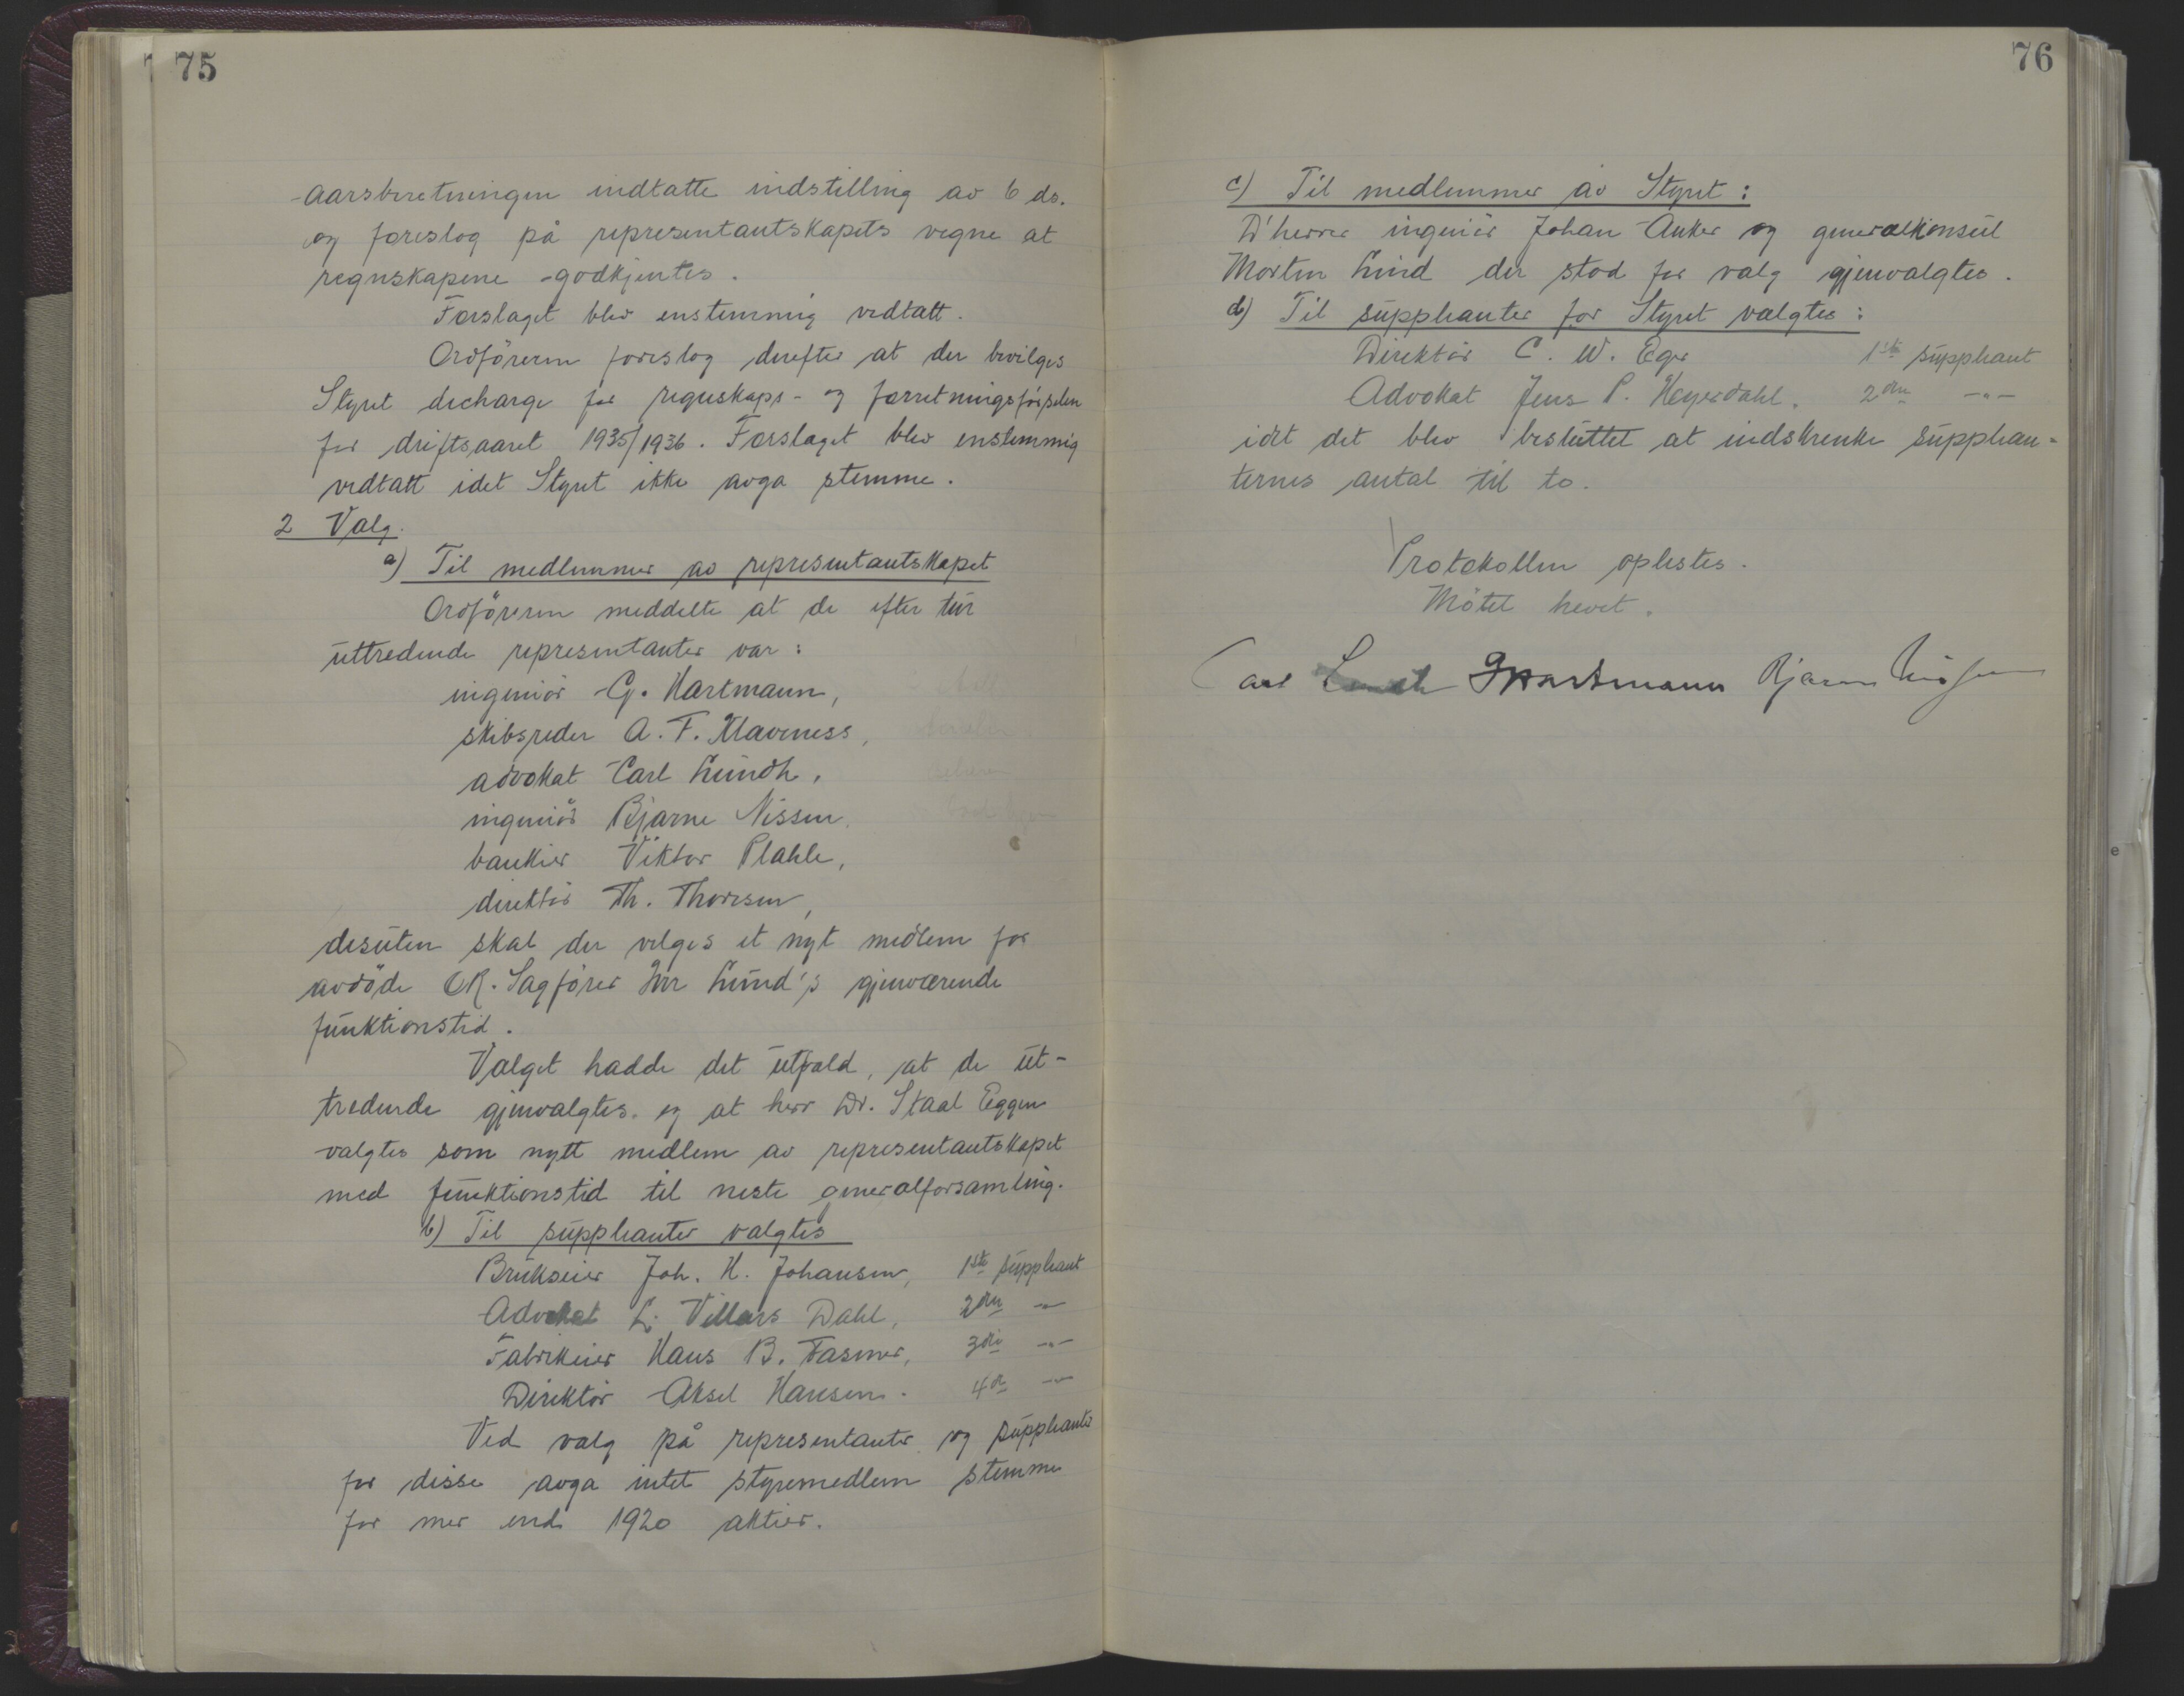 75
aarsberetningen indtatte indstilling av 6 ds.
og foreslog på representantskapets vegne at
regnskapene godkjentes.
Forslaget blev enstemmig vedtatt.
Ordføreren foreslog derefter at der bevilges
Styret decharge for regnskaps- og forretningsførselen
for driftsaaret 1935/1936. Forslaget blev enstemmig
vedtatt idet Styret ikke avga stemme.
2 Valg.
a) Til medlemmer av representantskapet
Ordføreren meddelte at de efter tur
uttredende representanter var:
ingeniör G. Hartmann,
skibsreder A. F. Klaveness,
advokat Carl Lundh,
ingeniör Bjarne Nissen,
bankier Viktor Plahte,
direktör Th. Thoresen,
desuten skal der velges et nyt medlem for
avdöde Sagförer Lund's gjenværende
funktionstid.
Valget hadde det utfald, at de ut-
tredende gjenvalgtes og at herr Dr. Staal Eggen
valgtes som nytt medlem av representantskapet
med funktionstid til neste generalforsamling.
b) Til suppleanter valgtes
Brukseier Joh. H. Johansen, 1ste suppleant
Advokat L. Villars Dahl, 2den -"-
Fabrikeier Hans B. Fasmer, 3die -"-
Direktör Aksel Hansen. 4de -"-
Ved valg på representanter og suppleanter
for disse avga intet styremedlem stemme
for mer end 1920 aktier.
76
c) Til medlemmer av Styret:
D'herrer ingeniör Johan Anker og generalkonsul
Morten Lind der stod for valg gjenvalgtes.
d) Til suppleanter for Styret valgtes:
Direktör C. W. Eger 1ste suppleant
Advokat Jens P. Heyerdahl. 2den -"-
idet det blev besluttet at indskrenke supplean-
ternes antal til to.
Protokollen oplestes.
Mötet hevet.
Carl Lundh G Hartmann Bjarne Nissen